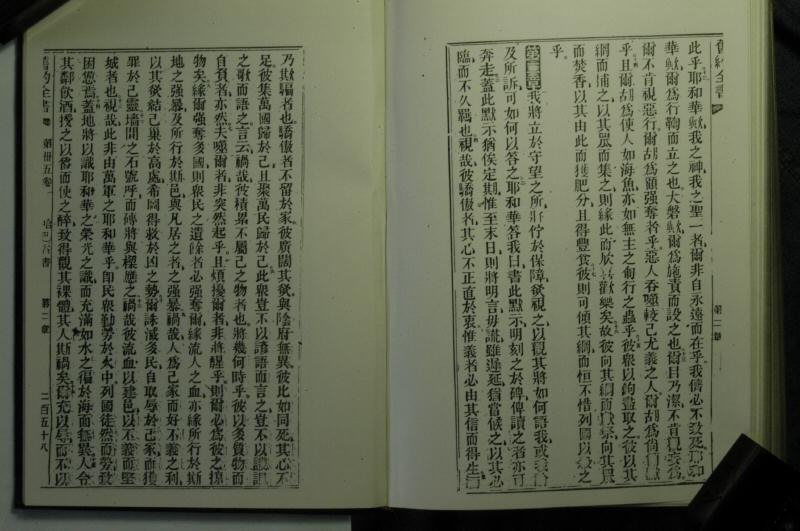 舊約全書
第一章
此乎耶和華歟我之神我之聖一者爾非自永遠而在乎我儕必不致死耶和
華歟爾爲行鞫而立之也大磐歟爾爲施責而設之也爾目乃潔不肯見
爾不肯視惡行爾胡爲顧強奪者乎惡人吞噬較己尤義之人爾胡爲
乎且爾胡爲使人如海魚亦如無主之匍行之蟲乎彼衆以鉤盡取之彼以其
網而捕之以其罛而集之則緣此而欣喜歡樂矣故彼向其網而獻祭向其罛
而焚香以其由此而獲肥分且得豐食彼則可傾其網而恒不惜列國以殺之
乎
第二章我將立於守望之所將佇於保障欲視之以觀其將如何語我或
及所訴可如何以答之耶和華答我曰書此默示明刻之於碑俾讀之者亦可
奔走蓋此默示猶俟定期惟至末日則將明言毋謊雖遲延猶當候之以其必
臨而不久羈也視哉彼驕傲者其心不正直於衷惟義者必由其信而得生
乃欺騙者也驕傲者不留於家彼廣闊其欲與陰府無異彼比如同死其心不
足彼集萬國歸於己且聚萬民歸於己此衆豈不以諺語而言之豈不以譏
之歌而語之言云禍哉彼積累不屬己之物者也將幾何時乎彼以多質物而
自負者亦然夫噬爾者非突然起乎且煩擾爾者非將醒乎則爾必爲彼之掠
物矣緣爾強奪多國則衆民之遺餘者必強奪爾緣流人之血亦緣所行於斯
地之強暴及所行於斯邑與凡居之者之強暴禍哉人爲己家而好不義之利
以其欲結己巢於高處希圖得救於凶之勢爾謀滅多民自取辱於己家而獲
罪於己靈墻間之石號呼而磚將與樑應之禍哉彼流血以建邑以不義而堅
城者也視哉此非由萬軍之耶和華乎卽民衆勤勞於火中列國徒然而勞致
困憊蓋地將以識耶和華之榮光之識而充滿如水之徧於海而無異人令
其鄰飲酒授之以甾而使之醉致得觀其裸體其人斯禍矣爾充以辱而不以
舊約全書 第卅五卷 哈巴谷書 第二章 二百五十八